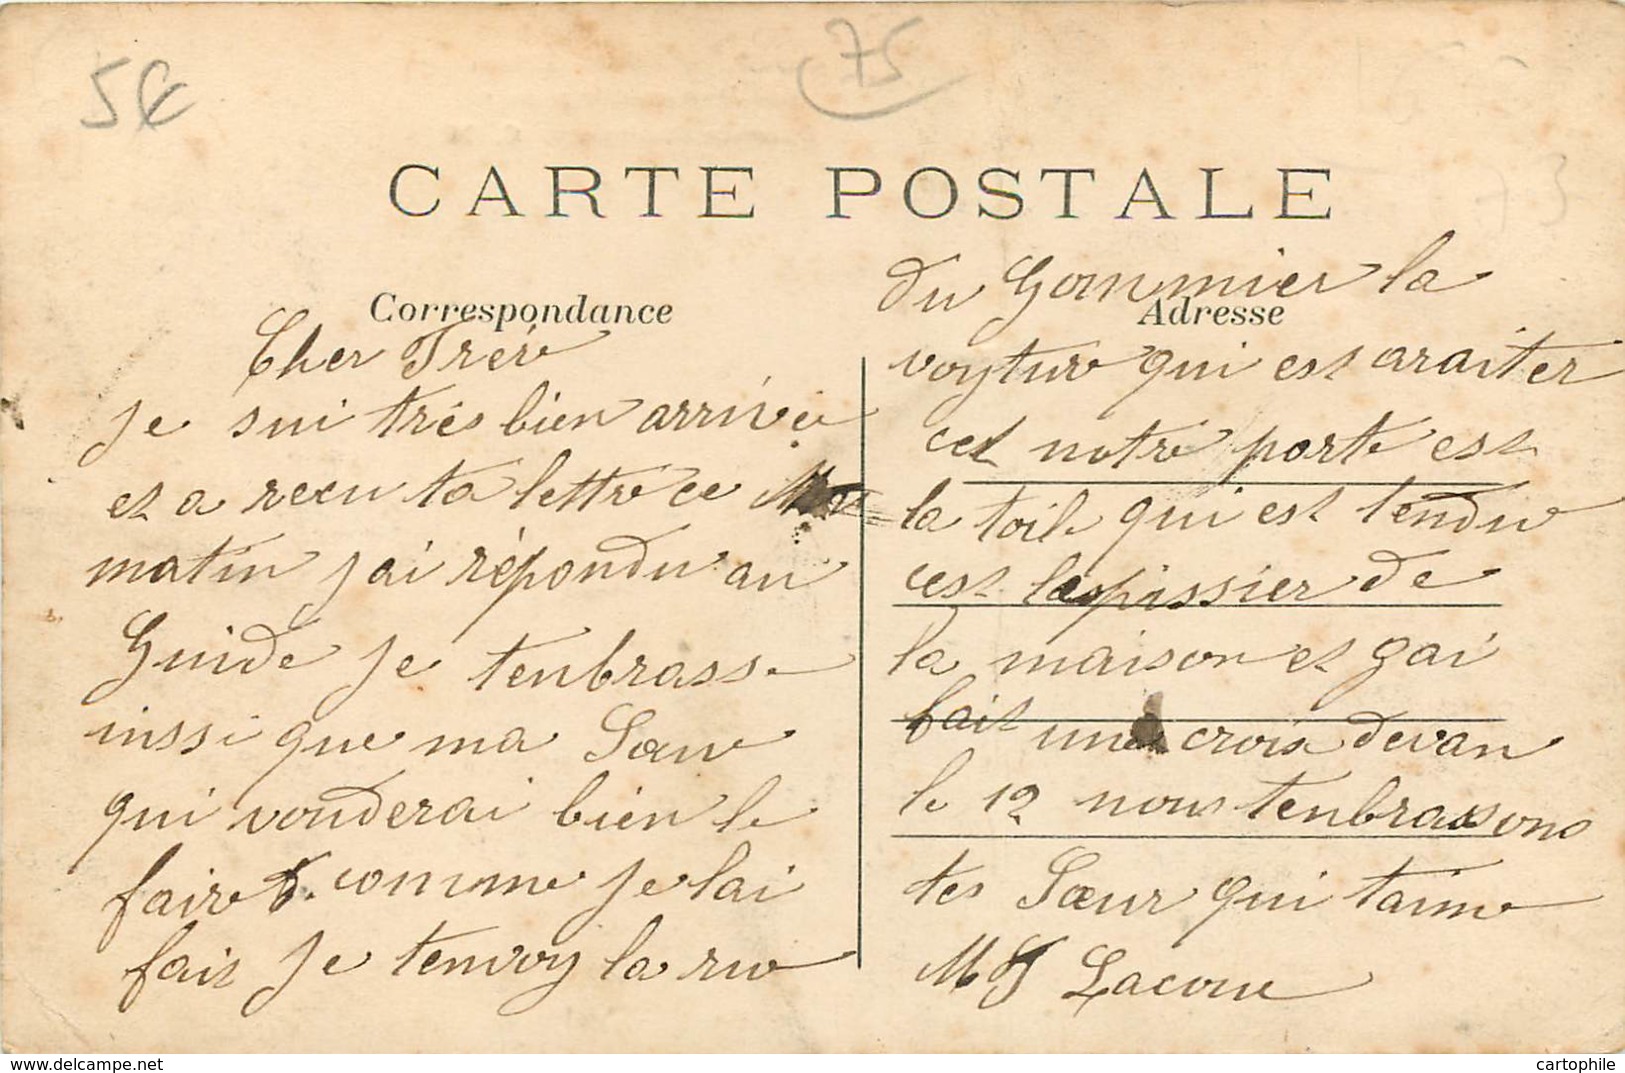 5€
75
73
CARTE POSTALE
Correspondance
Adresse
Cher Frér
je sui trés bien arrivée
et a recu ta lettre ce
matin jai répondu au
Guide je tenbrasse
inssi que ma Sœur
qui vouderai bien le
faire comme je lai
fait je tenvoy la rue
du Gommier la
voyture qui est araiter
cet notre porte est
la toile qui est tendu
cest lespissier de
la maison et gai
fait une croix devan
le 12 nous tenbrassons
tes Sœur qui taime
MJ Lacour
delcampe.net
cartophile